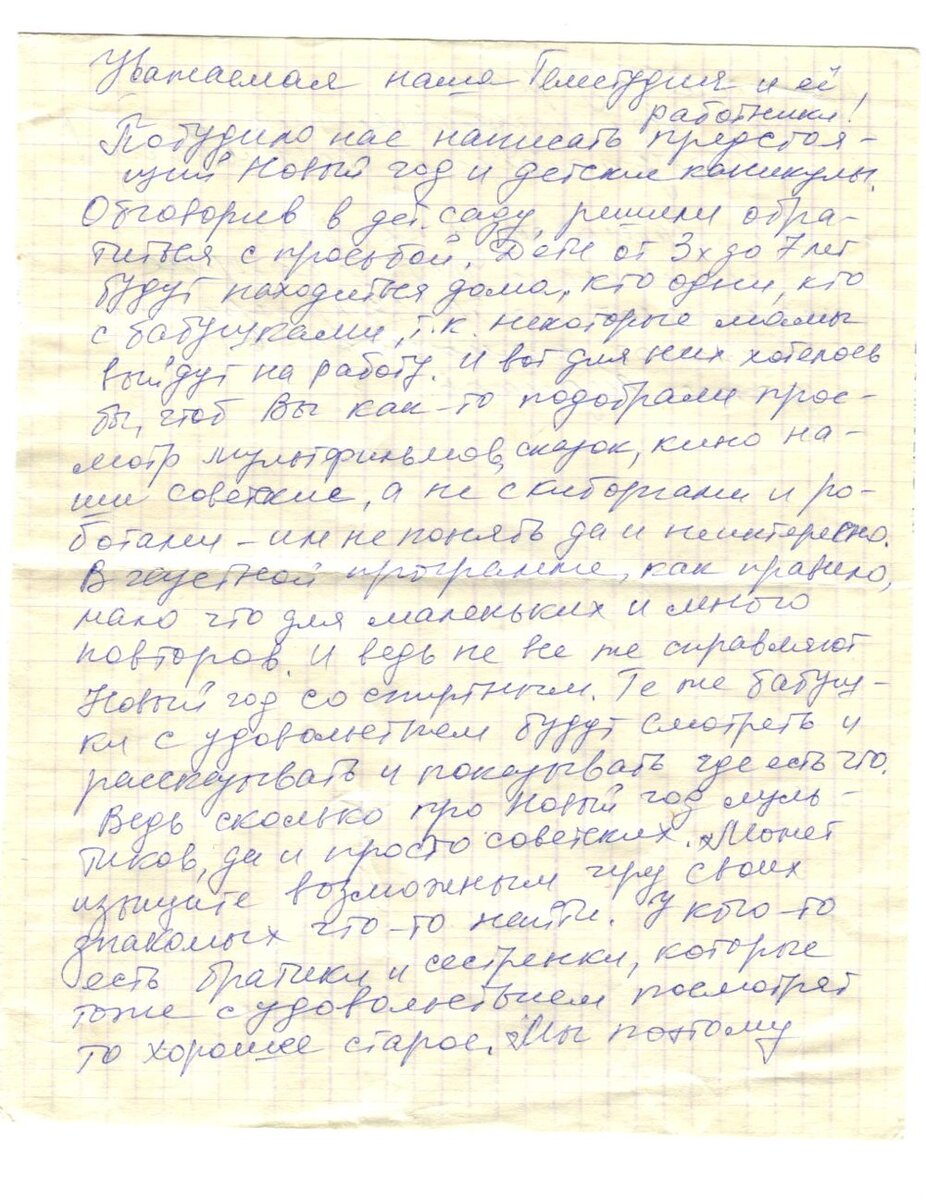 Уважаемая наша Телестудия и её
работники!
Побудило нас написать предстоя-
щий Новый год и детские каникулы.
Обговорив в дет. саду, решили обра-
титься с просьбой. Дети от 3х до 7 лет
будут находиться дома, кто одни, кто
с бабушками, т.к. некоторые мамы
выйдут на работу. И вот для них хотелось
бы, чтоб Вы как-то подобрали прос-
мотр мультфильмов, сказок, кино на-
ши советские, а не с киборгами и ро-
ботами – им не понять да и неинтересно.
В местной программе, как правило,
мало что для маленьких и много
повторов. И ведь не все же справляют
Новый год со спиртным. Те же бабуш-
ки с удовольствием будут смотреть и
рассказывать и показывать где есть что.
Ведь сколько про Новый год муль-
тиков, да и просто советских. Может
изыщите возможным чрез своих
знакомых что-то найти. У кого-то
есть братики и сестренки, которые
тоже с удовольствием посмотрят
то хорошее старое. Мы поэтому